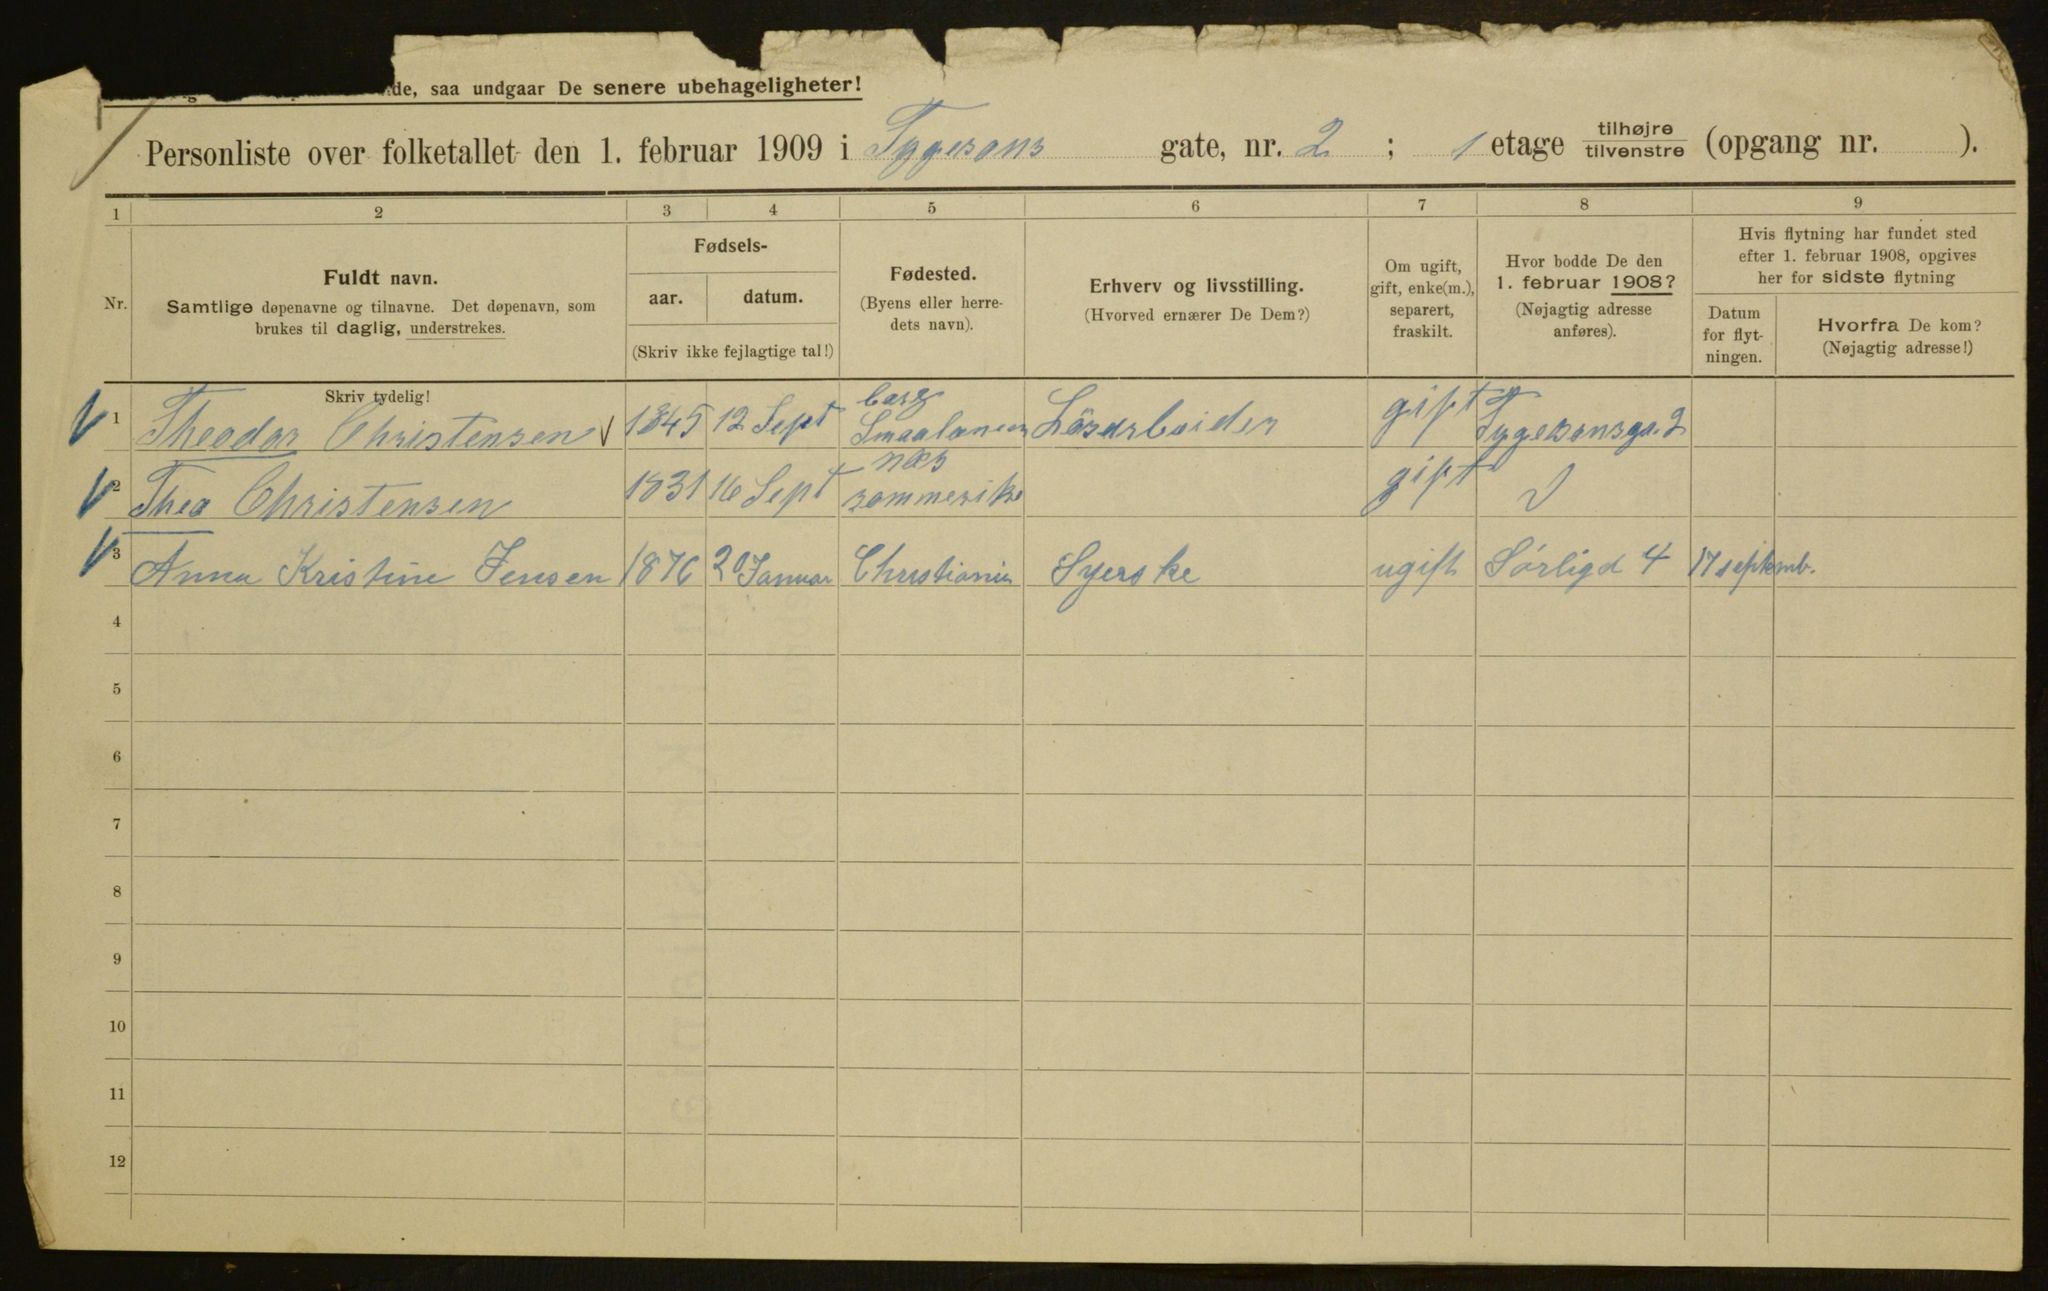 de, saa undgaar De senere ubehageligheter!
Personliste over folketallet den 1. februar 1909 i Tygesons gate, nr. 2 ; 1 etage tilhøjre/tilvenstre (opgang nr. ).
1 2 3 4 5 6 7 8 9
Nr.
Fuldt navn.
Samtlige døpenavne og tilnavne. Det døpenavn, som
brukes til daglig, understrekes.
Skriv tydelig!
Fødsels-
aar. datum.
(Skriv ikke fejlagtige tal!)
Fødested.
(Byens eller herre-
dets navn).
Erhverv og livsstilling.
(Hvorved ernærer De Dem?)
Om ugift,
gift, enke(m.),
separert,
fraskilt.
Hvor bodde De den
1. februar 1908?
(Nøjagtig adresse
anføres).
Hvis flytning har fundet sted
efter 1. februar 1908, opgives
her for sidste flytning
Datum
for flyt-
ningen.
Hvorfra De kom?
(Nøjagtig adresse!)
1 Theodor Christensen 1845 12 Sept borg Smaalenene Lösarbeider gift Tygesonsga. 2
2 Thea Christensen 1831 16 Sept næs rommerike gift
3 Anna Kristine Jensen 1876 20 Januar Christiania Syerske ugift Sørligd 4 17 septemb.
4
5
6
7
8
9
10
11
12